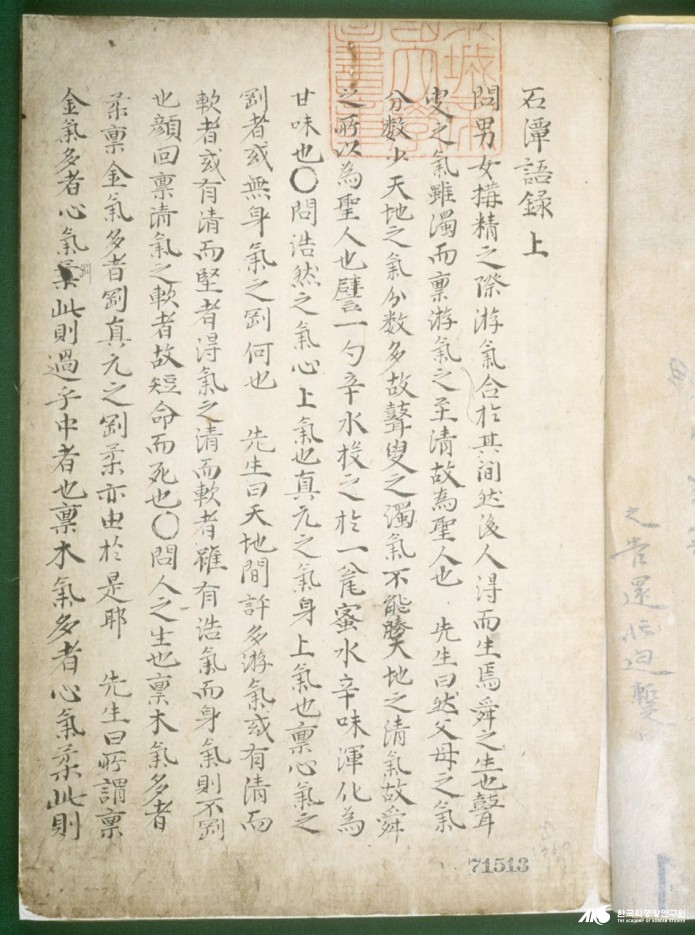 石潭語錄 上
問男女搆精之際游氣合於其間然後人得而生焉舜之生也瞽
叟之氣雖濁而禀游氣之至清故爲聖人也 先生曰然父母之氣
分数少天地之氣分数多故瞽叟之濁氣不能勝天地之清氣故舜
之所以爲聖人也譬一勺辛水投之於一瓮蜜水辛味渾化爲
甘味也〇問浩然之氣心上氣也真元之氣身上氣也禀心氣之
剛者或無身氣之剛何也 先生曰天地間許多游氣或有清而
軟者或有清而堅者得氣之清而軟者雖有浩氣而身氣則不剛
也顔回禀清氣之軟者故短命而死也〇問人之生也禀木氣多者
柔禀金氣多者剛真元之剛柔亦由於是耶 先生曰所謂禀
金氣多者心氣柔剛此則過乎中者也禀木氣多者心氣柔此則
71513
한국학중앙연구원
THE ACADEMY OF KOREAN STUDIES